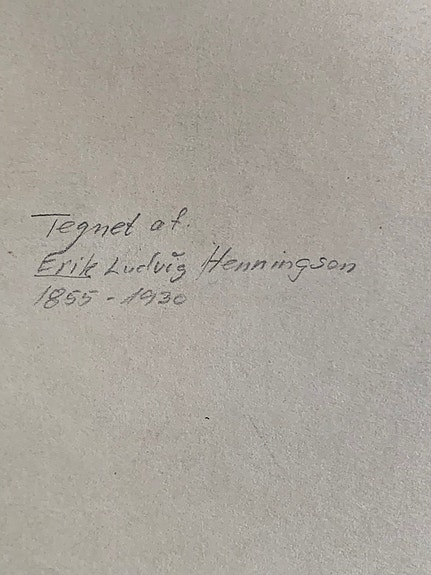 Tegnet af.
Erik Ludvig Henningson
1855 - 1930